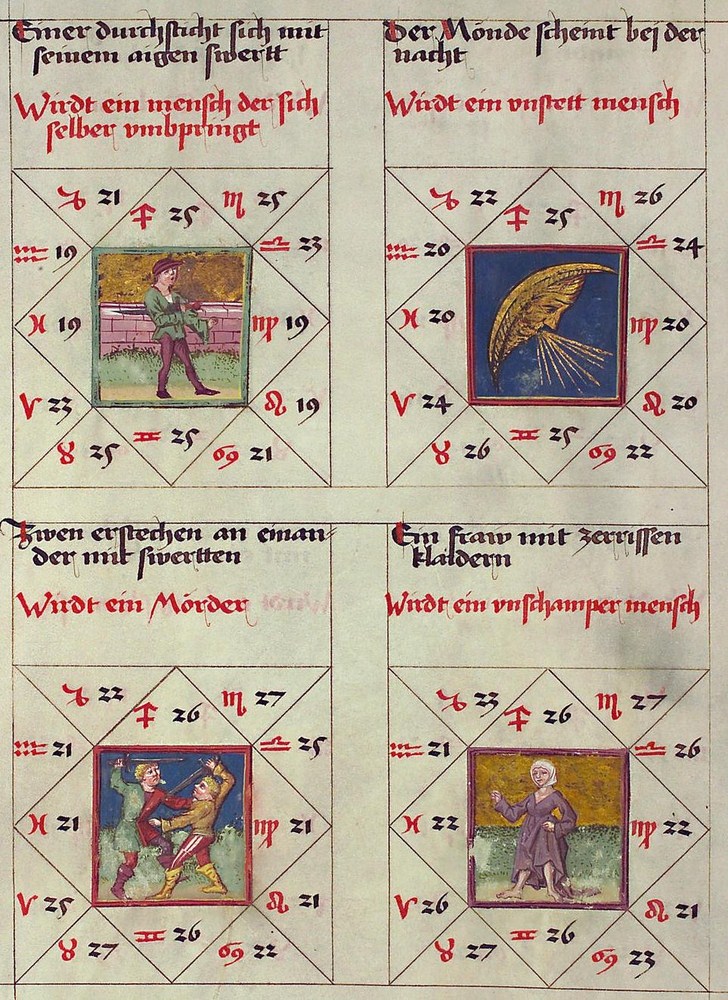 Einer durchsticht sich mit
seinem aigen swertt
Wirdt ein mensch der sich
selber vmbpringt
♑ 21
♐ 25
♏ 25
♒ 19
♎ 23
♓ 19
♍ 19
♈ 23
♌ 19
♉ 25
♊ 25
♋ 21
Der Mónde scheint bei der
nacht
Wirdt ein vnstett mensch
♑ 22
♐ 25
♏ 26
♒ 20
♎ 24
♓ 20
♍ 20
♈ 24
♌ 20
♉ 26
♊ 25
♋ 22
Zwen erstechen an einan-
der mit swertten
Wirdt ein Mórder
♑ 22
♐ 26
♏ 27
♒ 21
♎ 25
♓ 21
♍ 21
♈ 25
♌ 21
♉ 27
♊ 26
♋ 22
Ein fraw mit zerrissen
klaidern
Wirdt ein vnschamper mensch
♑ 23
♐ 26
♏ 27
♒ 21
♎ 26
♓ 22
♍ 22
♈ 26
♌ 21
♉ 27
♊ 26
♋ 23